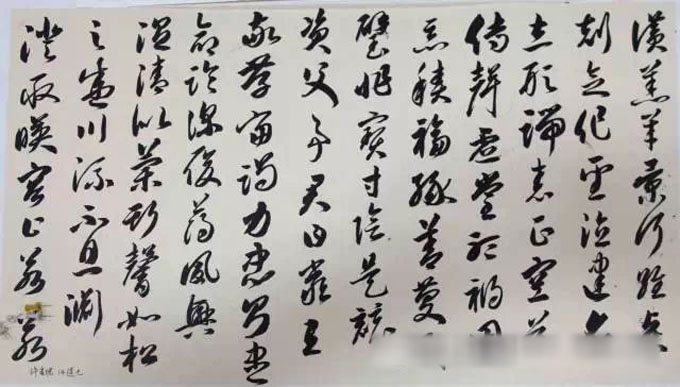 讚羔羊景行維賢
剋念作聖德建名
立形端表正空谷
傳聲虛堂禍因
惡積福緣善慶
璧非寶寸陰是競
資父事君曰嚴與
敬孝當竭力忠則盡
命臨深履薄夙興
溫清似蘭斯馨如松
之盛川流不息淵
澄取暎容止若若